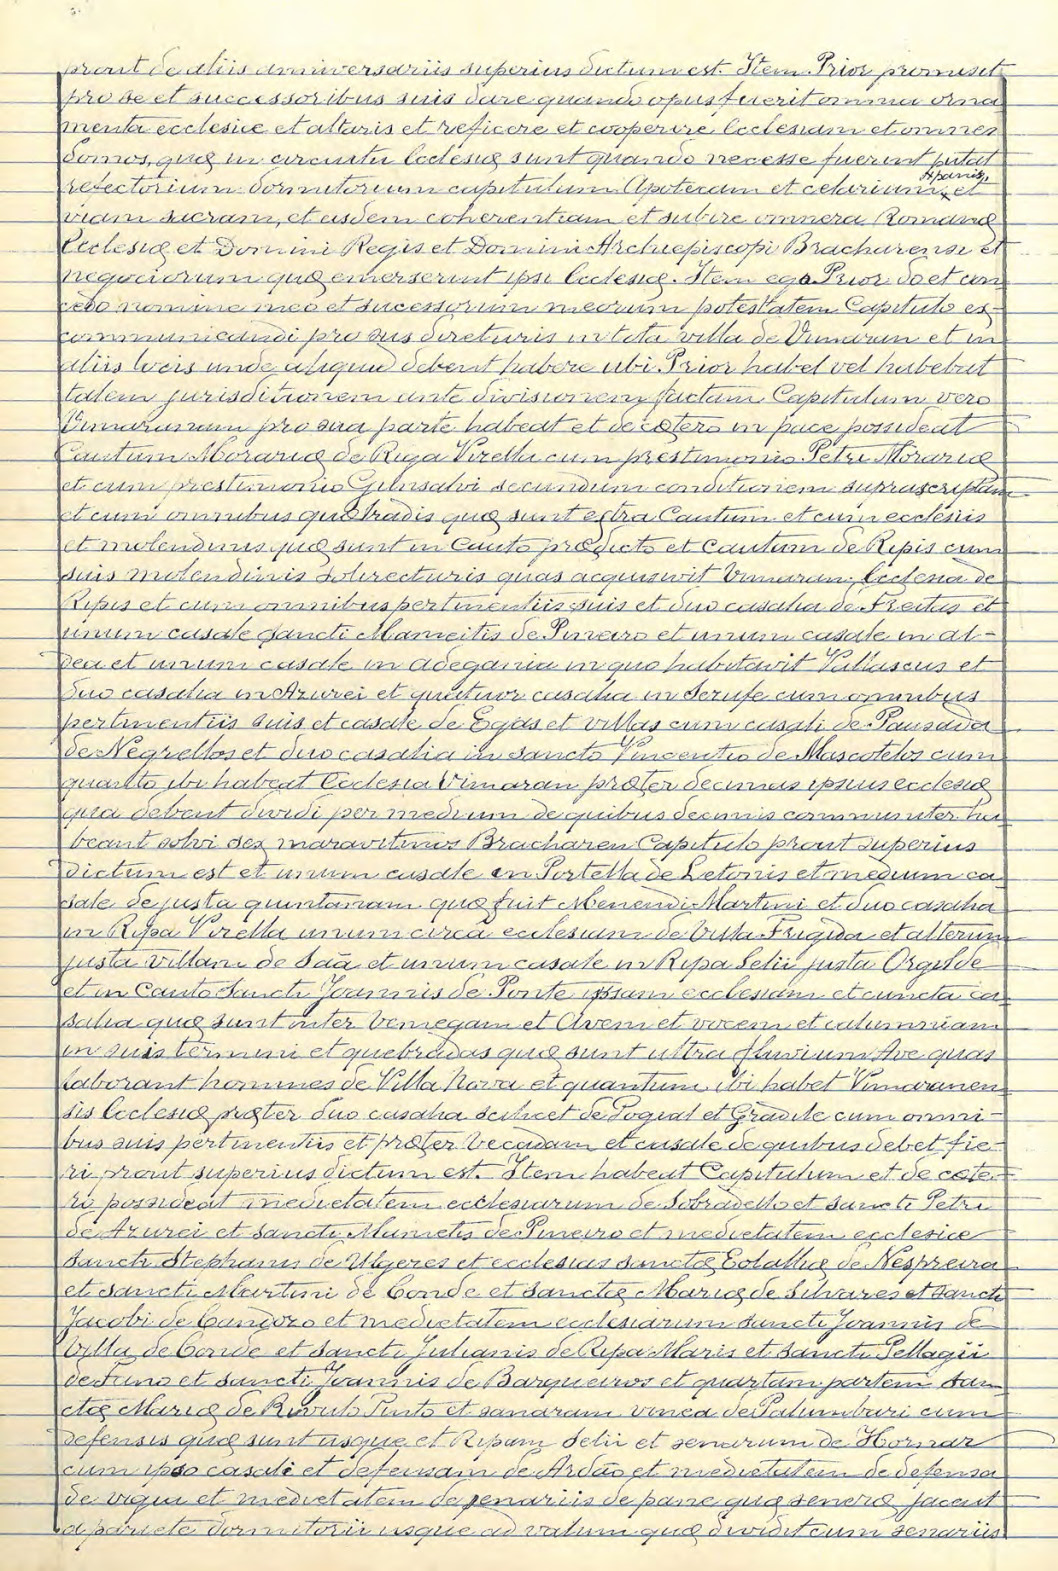 prout de aliis anniversariis superius dictum est. Item Prior promisit
pro se et successoribus suis dare quando opus fuerit omnia orna
menta ecclesiæ et altaris et reficere et cooperire Ecclesiam et omnes
domos, quæ in circuitu Ecclesiæ sunt quando necesse fuerint putat
refectorium dormitorium capitulum Apotecam et celarium, et
viam sacram, et eisdem coherentiam et subire omnera Romanæ
Ecclesiæ et Domini Regis et Domini Archiepiscopi Bracharensi et
negociorum quæ emerserint ipsi Ecclesiæ. Item ego Prior do et con
cedo nomine meo et sucessorum meorum potestatem Capitulo ex-
communicandi pro suis direturis in tota villa de Vimaran et in
aliis locis unde aliquid debent habere ubi Prior habet vel habebut
talem jurisditionem ante divisionem factam Capitulum vero
Vimaranum pro sua parte habeat et de cætero in pace possideat
Cautum Morariæ de Riga Virella cum prestimonio Petri Morariæ
et cum prestimonio Gunsalvi secundum conditionem suprascriptam
et cum omnibus quebradis quæ sunt extra Cautum et cum ecclesiis
et molendinis quæ sunt in Cauto prædicto et Cautum de Ripis cum
suis molendinis directuris quas acquisivit Vimaran. Ecclesia de
Ripis et cum omnibus pertinentiis suis et duo casalia de Freitas et
unum casale Sancti Mameitis de Pineiro et unum casale in al-
dea et unum casale in adegania in quo habitavit Valiascus et
duo casalia in Azurei et quatuor casalia in Serufe cum omnibus
pertinentiis suis et casale de Egas et villas cum casali de Pausada
de Negrellos et duo casalia in sancto Vincentio de Mascotelos cum
quanto ibi habeat Ecclesia Vimaran præter decimas ipsius ecclesiæ
qua debent dividi per medium de quibus decimis communiter ha
beant solvi sex maravitinos Bracharen Capitulo prout superius
dictum est et unum casale en Portella de Letonis et medium ca
sale de justa quintanam quæ fuit Menendi Martini et duo casalia
in Ripa Virella unum circa ecclesiam de Villa Frigida et alterum
justa villam de Saã et unum casale in Ripa Selii justa Orgilde
et in Canto Sancti Joannis de Ponte ipsam ecclesiam et cuncta ca
salia quæ sunt inter Vemegam et Avem et vocem et calumniam
in suis termini et quebradas quæ sunt ultra fluvium Ave quas
laborant hommes de Villa Nova et quantum ibi habet Vimaranen
sis Ecclesiæ præter duo casalia scilicet de Pogial et Gradile cum omni-
bus suis pertinentiis et præter Vecadam et casale de quibus debet fie-
ri prout superius dictum est. Item habeat Capitulum et de cete-
ri possideat medietatem ecclesiarum de Sobradello et sancti Petri
de Azurei et sancti Mametis de Pineiro et medietatem ecclesiæ
sancti Stephani de Ulgeres et ecclesias sanctæ Eolalliæ de Nespreira
et sancti Martini de Conde et sanctæ Mariæ de Silvares et sancti
Jacobi de Candozo et medietatem ecclesiarum sancti Joannis de
Villa de Conde et sancti Julianis de Ripa Maris et sancti Pellagii
de Fano et sancti Joannis de Barqueiros et quartam partem san-
ctæ Mariæ de Rivulo Tinto et senaram vinea de Palumbari cum
defensis quæ sunt usque et Ripam Selii et senarum de Hornar
cum ipso casali et defensam de Ardão et medietatem de defensa
de vigia et medietatem de senariis de pane quæ senera jaceat
a pariete dormitorii usque ad valum quæ dividit cum senariis